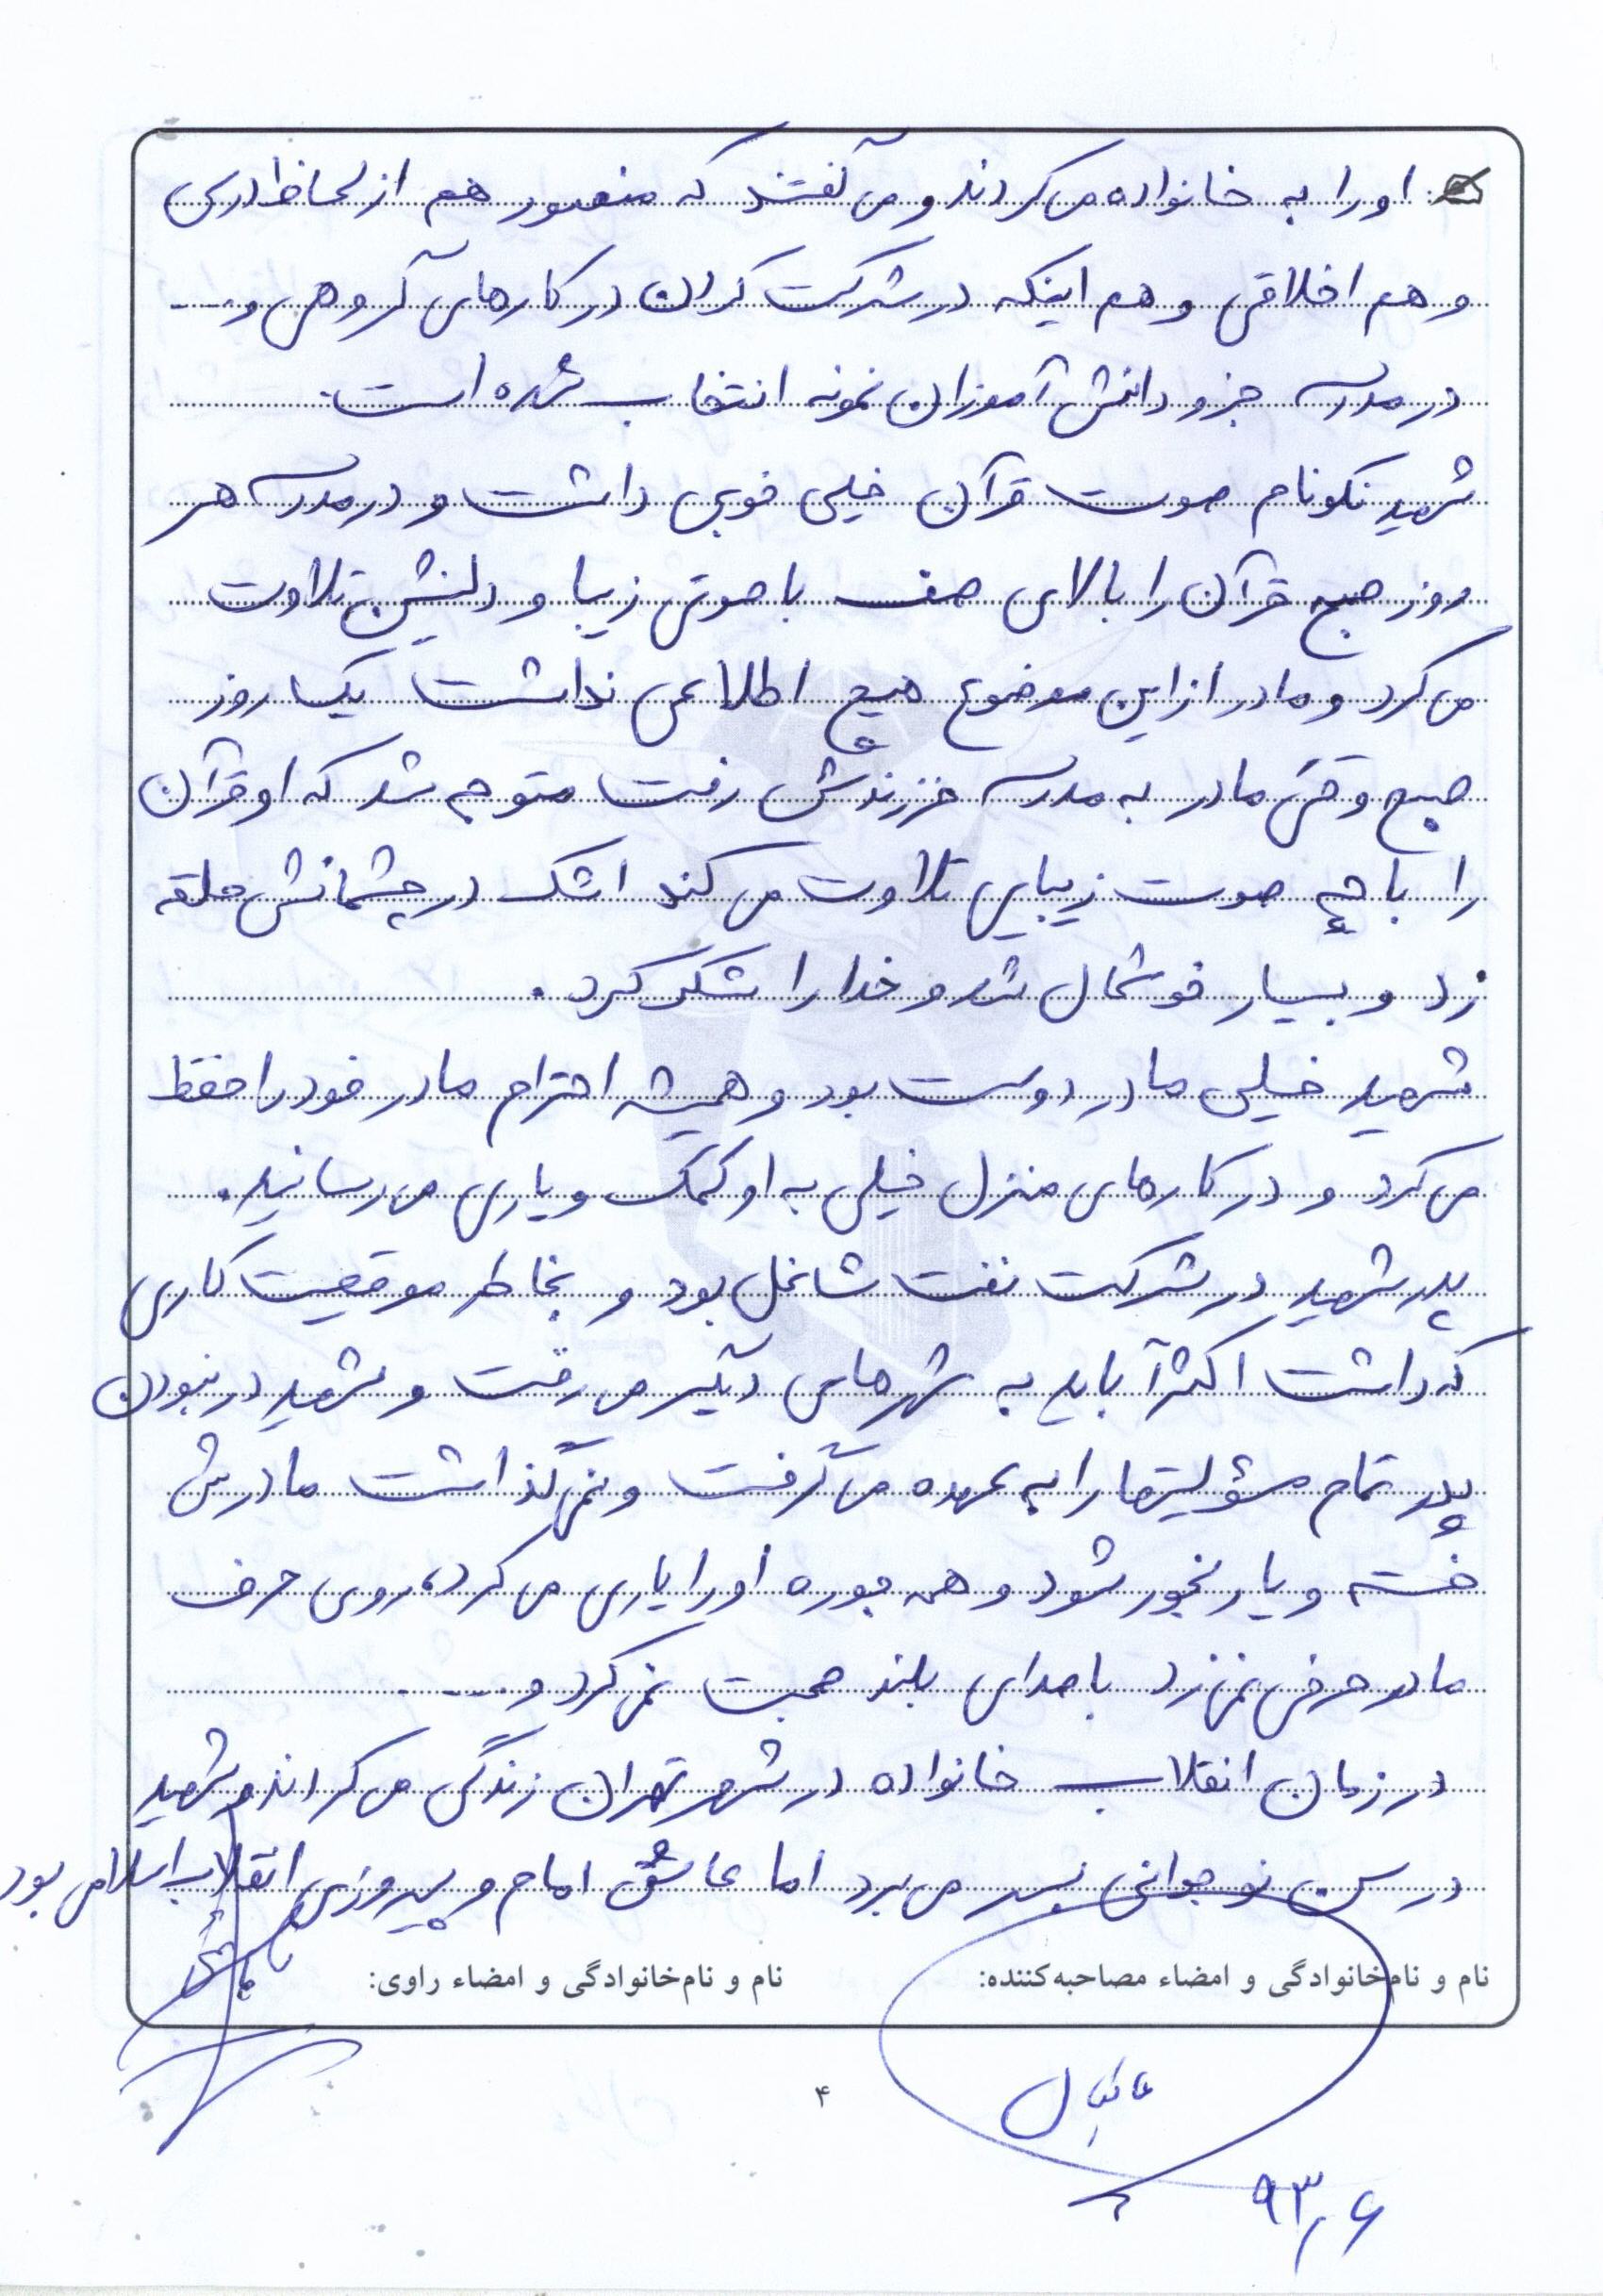 او را به خانواده می کردند و می گفتند که منصور هم از لحاظ درسی
و هم اخلاقی و هم اینکه در شرکت کردن در کارهای گروهی و ....
در مدرسه جزو دانش آموزان نمونه انتخاب شده است.
شهید نکونام صوت قرآن خیلی خوبی داشت و در مدرسه هر
روز صبح قرآن را بالای صف با صوتی زیبا و دلنشین تلاوت
می کرد و مادر از این موضوع هیچ اطلاعی نداشت یک روز
صبح وقتی مادر به مدرسه فرزندش رفت متوجه شد که او قرآن
را با چه صوت زیبایی تلاوت می کند اشک در چشمانش حلقه
زد و بسیار خوشحال شد و خدا را شکر کرد.
شهید خیلی مادر دوست بود و همیشه احترام مادر خود را حفظ
می کرد و در کارهای منزل خیلی به او کمک و یاری می رسانید.
پدر شهید در شرکت نفت شاغل بود و بخاطر موقعیت کاری
که داشت اکثراً باید به شهرهای دیگر می رفت و شهید در نبودن
پدر تمام مسؤلیتها را به عهده می گرفت و نمی گذاشت مادرش
خسته و یا رنجور شود و همه جوره او را یاری می کرد، روی حرف
مادر حرفی نمی زد با صدای بلند صحبت نمی کرد و ....
در زمان انقلاب خانواده در شهر تهران زندگی می کردند و شهید
در سن نوجوانی بسر می برد اما عاشق امام و پیروزی انقلاب اسلامی بود
نام و نام‌خانوادگی و امضاء مصاحبه‌کننده:
نام و نام‌خانوادگی و امضاء راوی:
۴
۹۳/۶